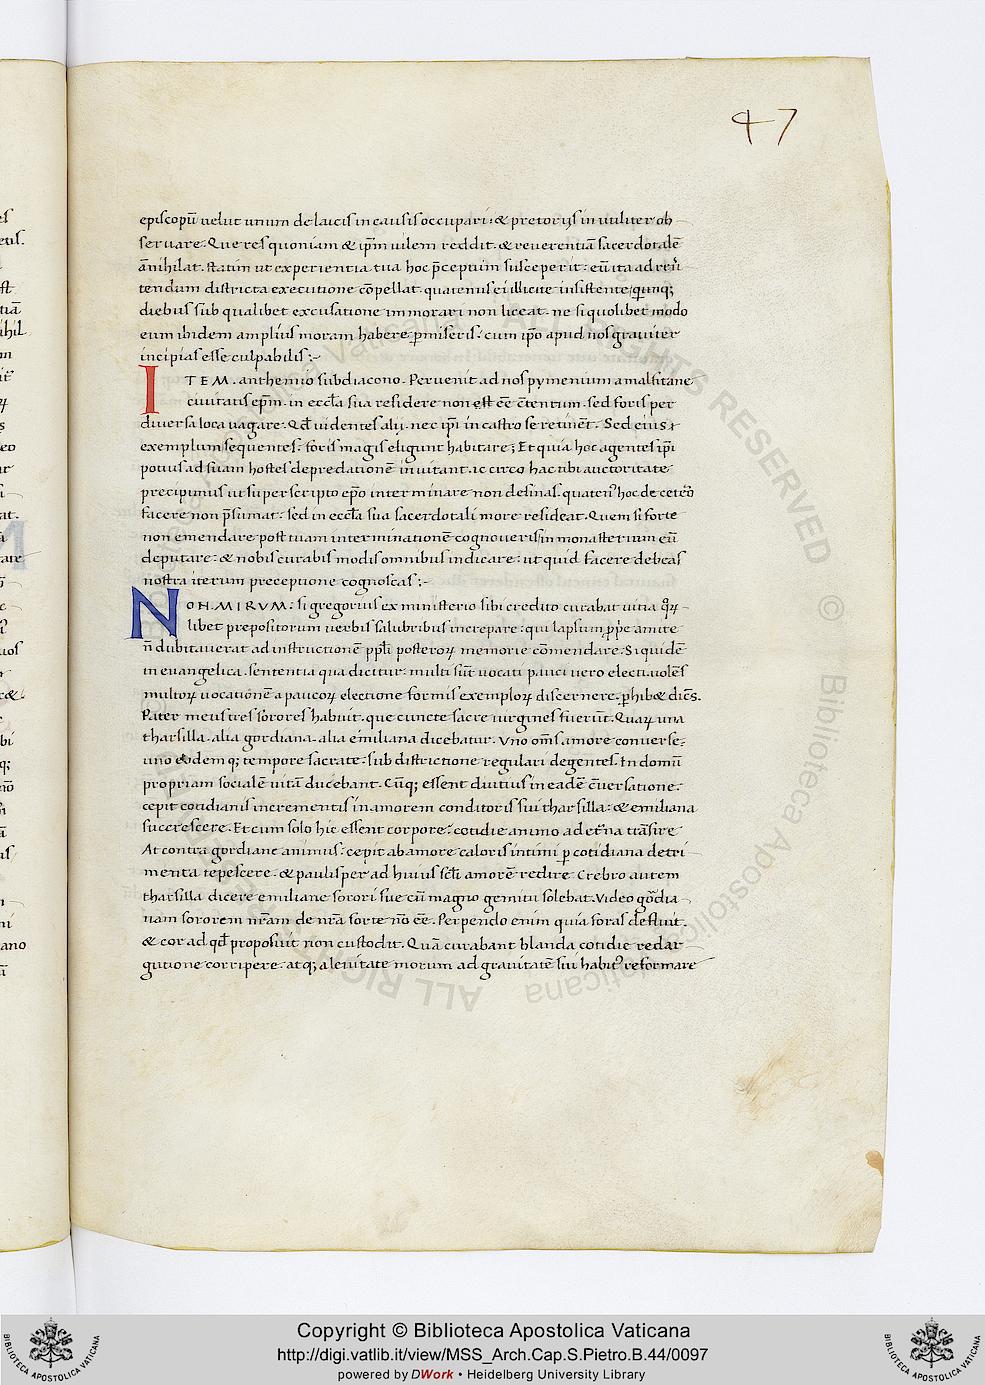 47
episcopū velut unum de laicis in causis occupari: & pretorijs inutiliter ob
servare. Que res quoniam & ip̄m vilem reddit. & reverentiā sacerdotalē
ānihilat. statim ut experientia tua hoc p̄ceptum susceperit: eū ita ad
tendum districta executione cōpellat. quatenus ei illicite insistente
diebus sub qualibet excusatione immorari non liceat. ne si quolibet modo
eum ibidem amplius moram habere ꝑmiseris: cum ip̄o apud nos graviter
incipias esse culpabilis:-
ITEM. anthemio subdiacono. Pervenit ad nos pymenium amalsitane
civitatis ep̄m. in eccl̄a sua residere non est ēē c̄tentum. sed foris per
diversa loca vagare. Qd̄ videntes alij. nec ip̄i in castro se Sed eius
exemplum sequentes. foris magis eligunt habitare; Et quia hoc agentes ip̄i
potius ad suam hostes depredationē invitant. ic circo hac tibi auctoritate
precipimus ut superscripto ep̄o interminare non desinas. quaten᾽ hoc de cetero
facere non p̄sumat: sed in eccl̄a sua sacerdotali more resideat. Quem si forte
non emendare post tuam interminationē cognoveris in monasterium eū
deputare: & nobis curabis modis omnibus indicare: ut quid facere debeas
nostra iterum preceptione cognoscas:-
NON. MIRUM: si gregorius ex ministerio sibi credito curabat vitia
libet prepositorum verbis salubribus increpare: qui lapsum amite
n̄ dubitaverat ad instructionē pp̄li posteroꝝ memorie cōmendare. Siquidē
in evangelica. sententia qua dicitur: multi sūt vocati pauci vero electi. volēs
multoꝝ vocationē a paucoꝝ electione formis exemploꝝ discernere. ꝑhib& diēs.
Pater meus tres sorores habuit. que cuncte sacre virgines fuerūt. Quaꝝ una
tharsilla. alia gordiana. alia emiliana dicebatur. Uno om̄s amore converse:
uno eodemq; tempore sacrate: sub districtione regulari degentes. In domū
propriam socialē vitā ducebant. Cūq; essent diutius in eadē c̄versatione:
cepit cotidianis incrementis in amorem conditoris sui tharsilla: & emiliana
succrescere. Et cum solo hic essent corpore: cotidie animo ad et̄na trāsire
At contra gordiane animus: cepit ab amore caloris intimi ꝑ cotidiana detri
menta tepescere. & paulisper ad huius scl̄i amorē redire. Crebro autem
tharsilla dicere emiliane sorori sue cū magno gemitu solebat. Video gōdia
nam sororem nr̄am de nr̄a sorte nō ēē. Perpendo enim quia foras defluit.
& cor ad qd̄ proposuit non custodit. Quā curabant blanda cotidie redar
gutione corripere. atq; a levitate morum ad gravitatē sui habit᾽ reformare
Copyright © Biblioteca Apostolica Vaticana
http://digi.vatlib.it/view/MSS_Arch.Cap.S.Pietro.B.44/0097
powered by DWork • Heidelberg University Library